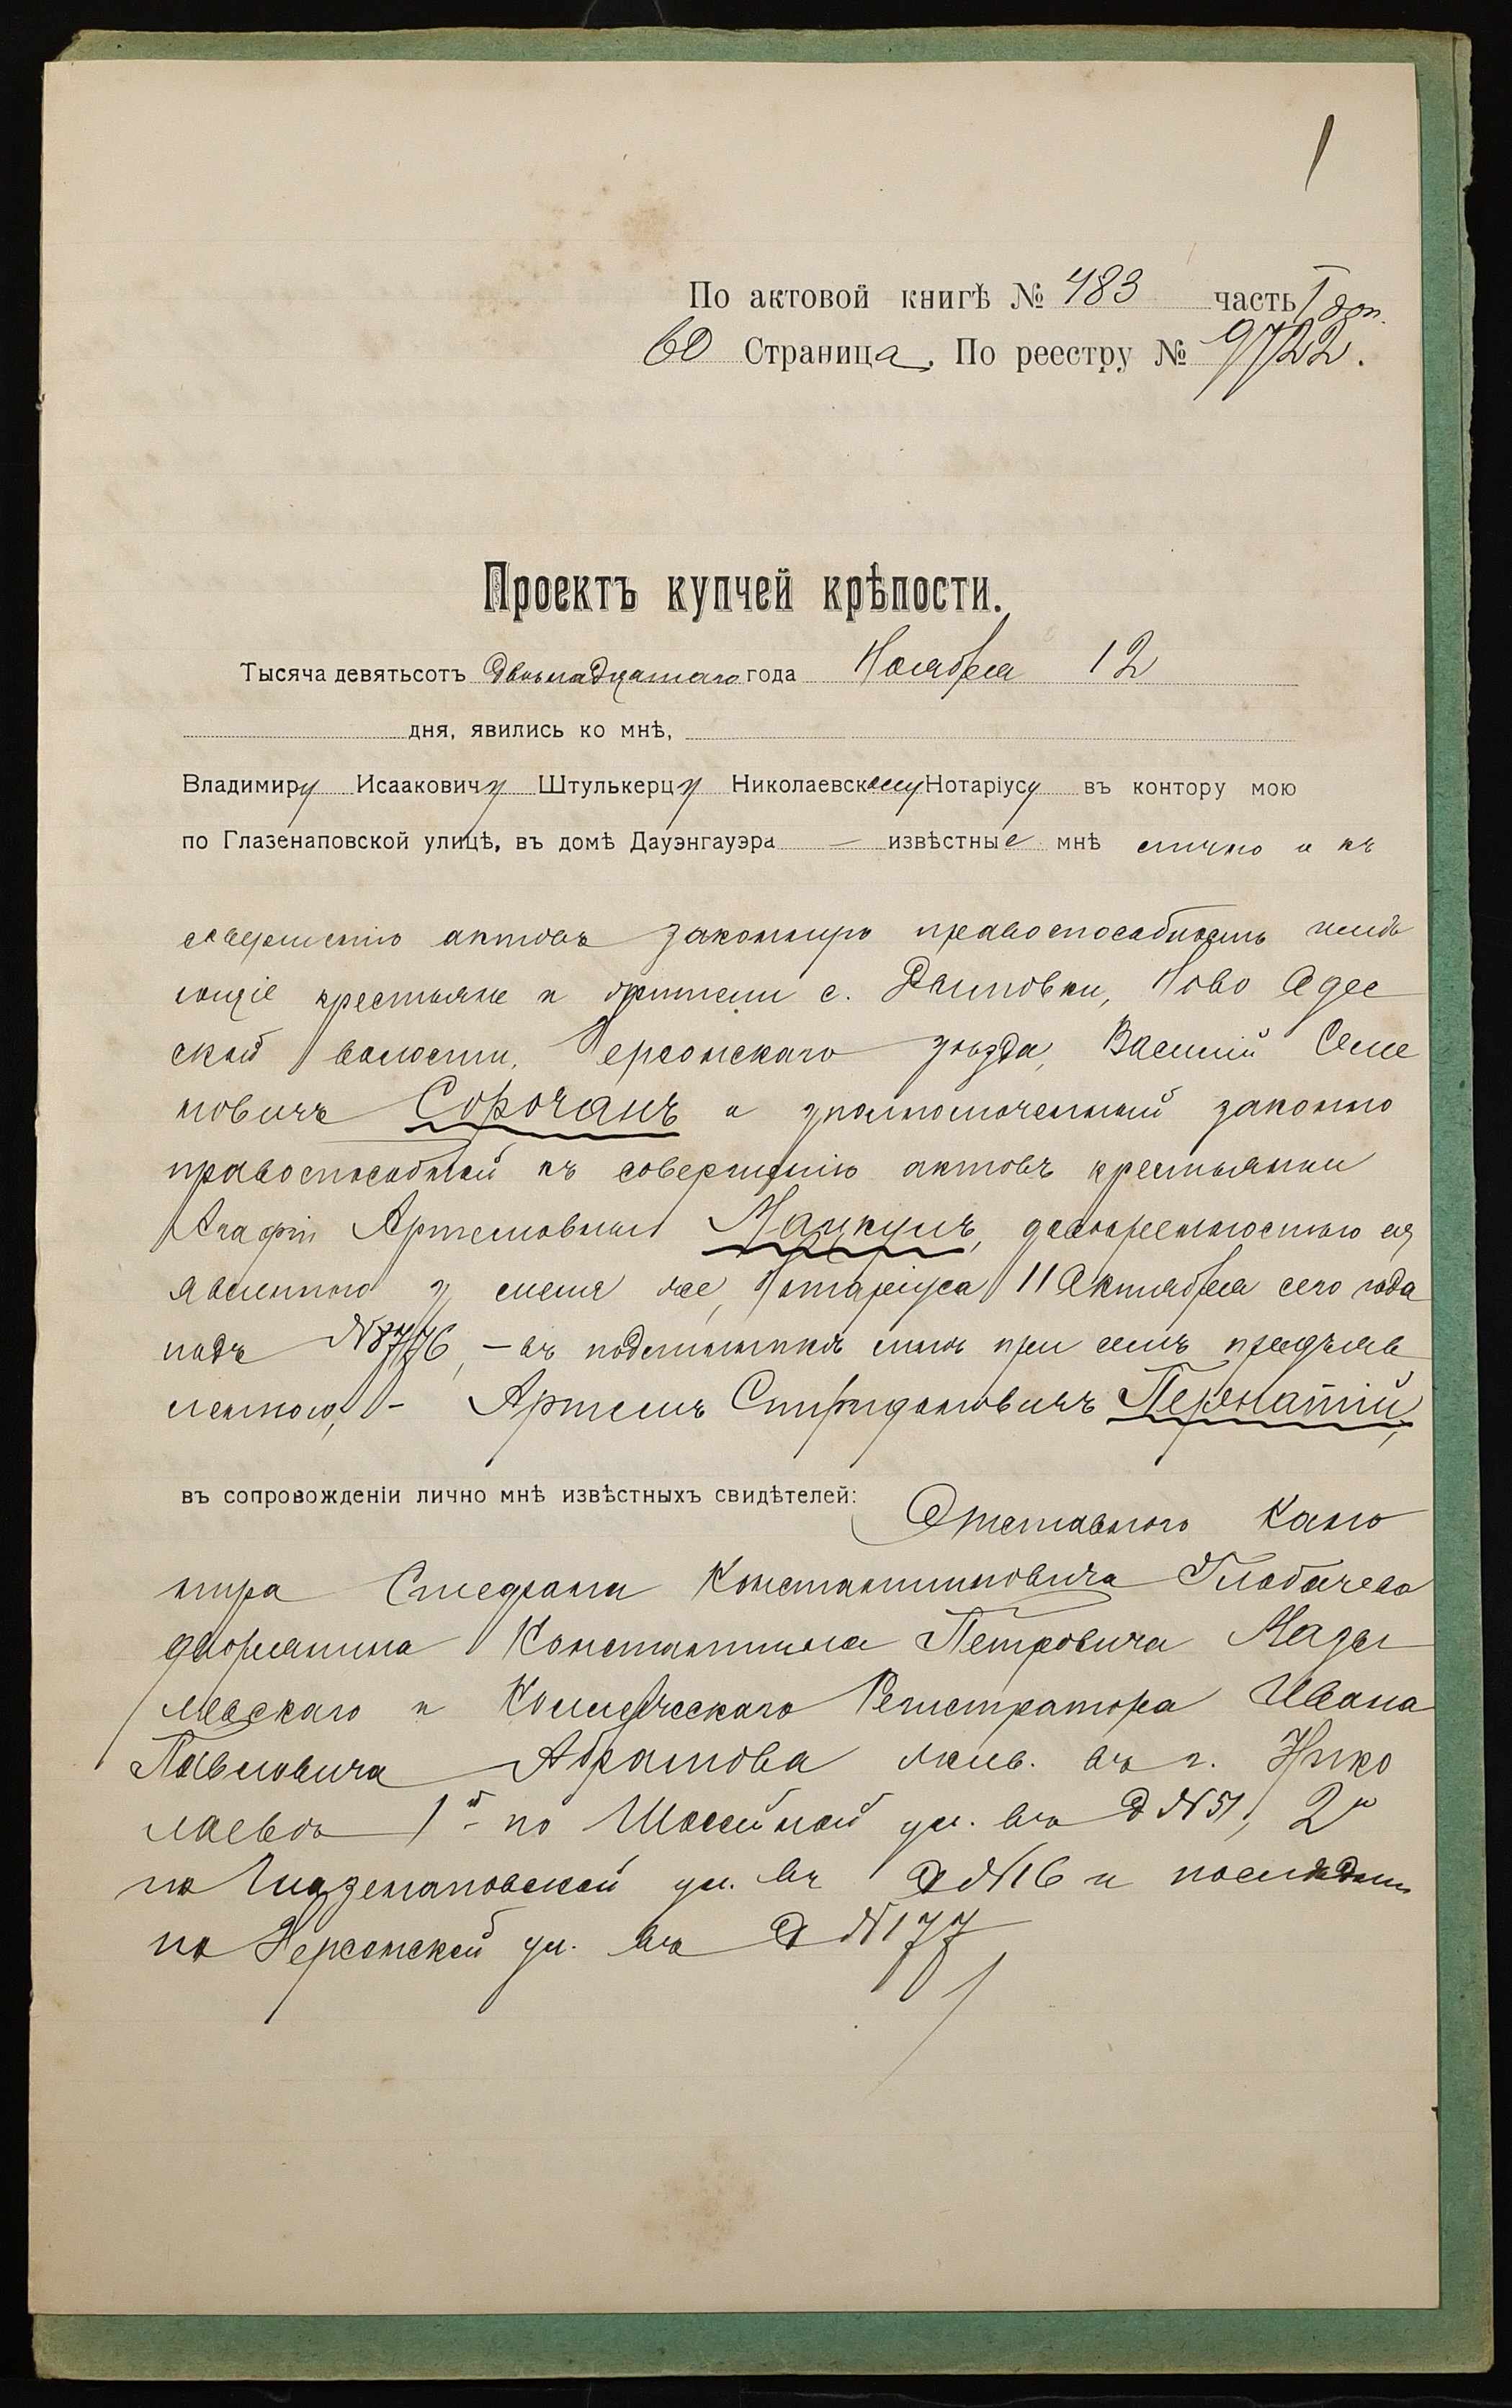 1
По актовой книгѣ № 483 часть I доп.
60 Страница. По реестру № 9722.
Проектъ купчей крѣпости.
Тысяча девятьсотъ двѣнадцатаго года Ноября 12
дня, явились ко мнѣ,
Владимиру Исааковичу Штулькерцу Николаевскому Нотаріусу въ контору мою
по Глазенаповской улицѣ, въ домѣ Дауэнгауэра — извѣстные мнѣ лично и къ
совершенію актовъ законную правоспособность имѣ
ющіе крестьяне и жители с. Ново Одес
ской волости, Херсонскаго уѣзда, Василій Семе
новичъ Сорочанъ и уполномоченный законно
правоспособной къ совершенію актовъ крестьянки
Агафіи Артемовны довѣренностью ея
явленною у меня же, Нотаріуса 11 Октября сего года
подъ №8776, — въ подлинникѣ мнѣ при семъ предъяв
ленною, — Артемъ Спиридоновичъ
въ сопровожденіи лично мнѣ извѣстныхъ свидѣтелей: Отставного Кано
нира Стефана Константиновича Глобачева
дворянина Константина Петровича Мазы
левскаго и Коллежскаго Регистратора Ивана
Павловича Абрамова жив. въ г. Нико
лаевѣ 1й - по Шоссейной ул. въ д №51, 2й
по Глазенаповской ул. въ д №16 и послѣдній
по Херсонской ул. въ д №177